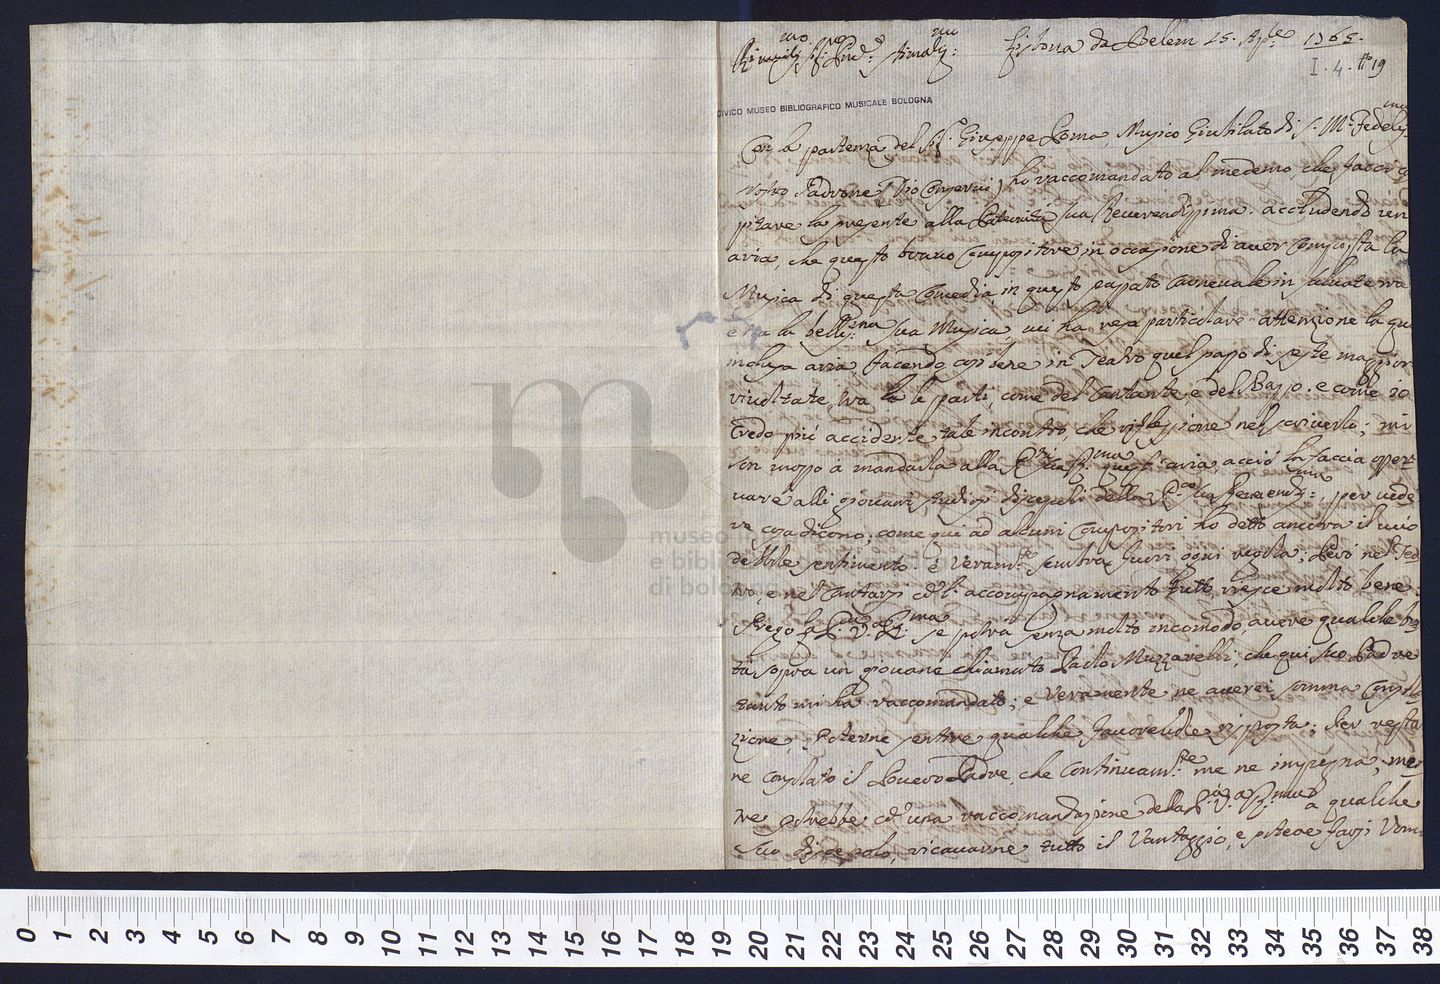 Lisbona da Belem 25. Aple 1765.
I. 4. 19
CIVICO MUSEO BIBLIOGRAFICO MUSICALE BOLOGNA
Con la partenza del Sigr. Giuseppe Roma, Musico Giubilato di S. M. Fedelissma
nostro Padrone (Dio Conservi) ho raccomandato al medemo, che facci
pitare la presente alla Paternità sua Reverendissima. accludendo
aria, che questo bravo Compositore, in occasione di aver Composta la
Musica di questa Comedia in questo passato Carnevale in
e tra la bellissma sua Musica, mi ha resa particolare attenzione la
inclusa aria, facendo così bene in Teatro quel passo di seste maggiori
rivoltate, tra le parti, come del Cantante, e del Basso. e come io
Credo più accidente tale incontro, che riflessione nel scriverlo; mi
son mosso à mandarla alla quest'aria, acciò la faccia osser
vare alli giovani studiosi discepoli della per vede
re cosa dicono; come qui ad alcuni Compositori ho detto ancora il mio
debbile sentimento. è veramte sembra fuori ogni regola, Però nel Tea
tro, e nel Cantarsi col'accompagnamento tutto riesce molto bene.
Prego la P. V. Rma se potrà senza molto incomodo, avere qualche
tà sopra un giovane chiamato Paolo Muzzarelli, che qui suo Padre
tanto mi ha raccomandato; e veramente ne averei somma Consola
zione, Poterne sentire qualche favorevole risposta; Per resta
ne consolato il Povero Padre, che Continuamte me ne impegna,
re potrebbe cod'una raccomandazione della P. V. Rma a qualche
suo discepolo, ricavarne tutto il Vantaggio, e potere farsi Vom
museo
e bibli
di bologna
0 1 2 3 4 5 6 7 8 9 10 11 12 13 14 15 16 17 18 19 20 21 22 23 24 25 26 27 28 29 30 31 32 33 34 35 36 37 38